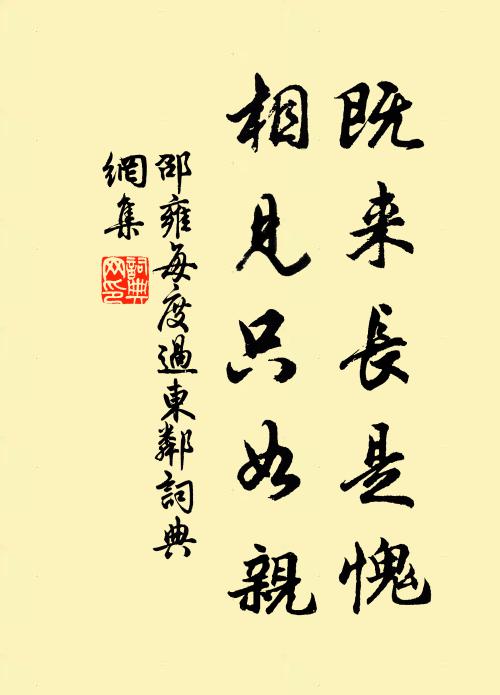 既来長是愧
相見只如親
邵雍每度過東鄰詞典
網集
詞典
网印